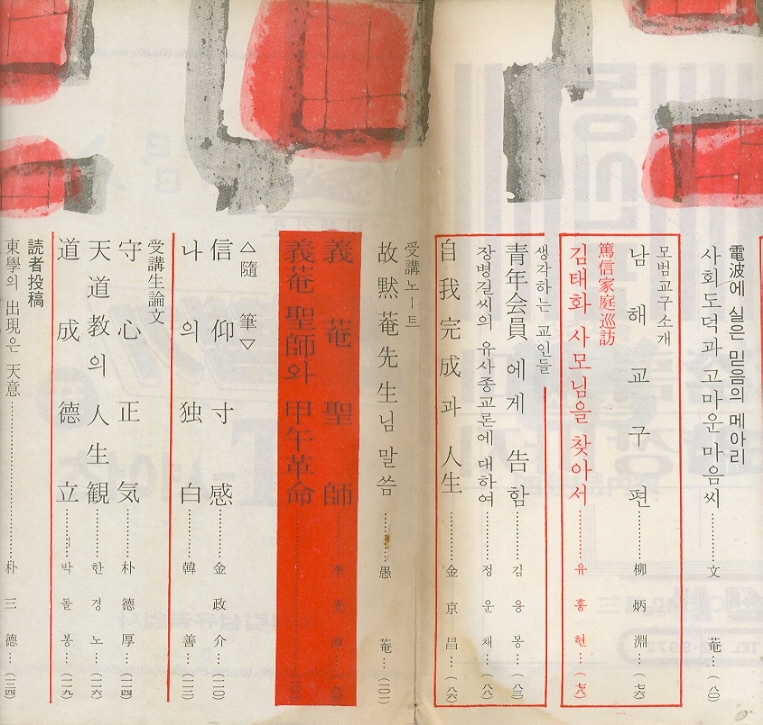 電波에 실은 믿음의 메아리
사회도덕과 고마운 마음씨……文 菴…(八〇)
모범교구소개
남해교구편……柳炳淵…(七六)
篤信家庭巡訪
김태화 사모님을 찾아서……유흥현…(七八)
생각하는 교인들
青年会員에게 告함……김응봉…(八三)
장병길씨의 유사종교론에 대하여……정운채…(八八)
自我完成과 人生……金京昌…(八六)
受講노ー트
故黙菴先生님 말씀……愚 菴…(一〇一)
義菴聖師
義菴聖師와 甲午革命
△隨 筆▽
信仰寸感……金政介…(一一〇)
나의 独白……韓 善…(一一三)
受講生論文
守心正気……朴德厚…(一一四)
天道教의 人生観……한경노…(一二六)
道成德立……박돌봉…(一二九)
読者投稿
東學의 出現은 天意……朴三德…(一三四)